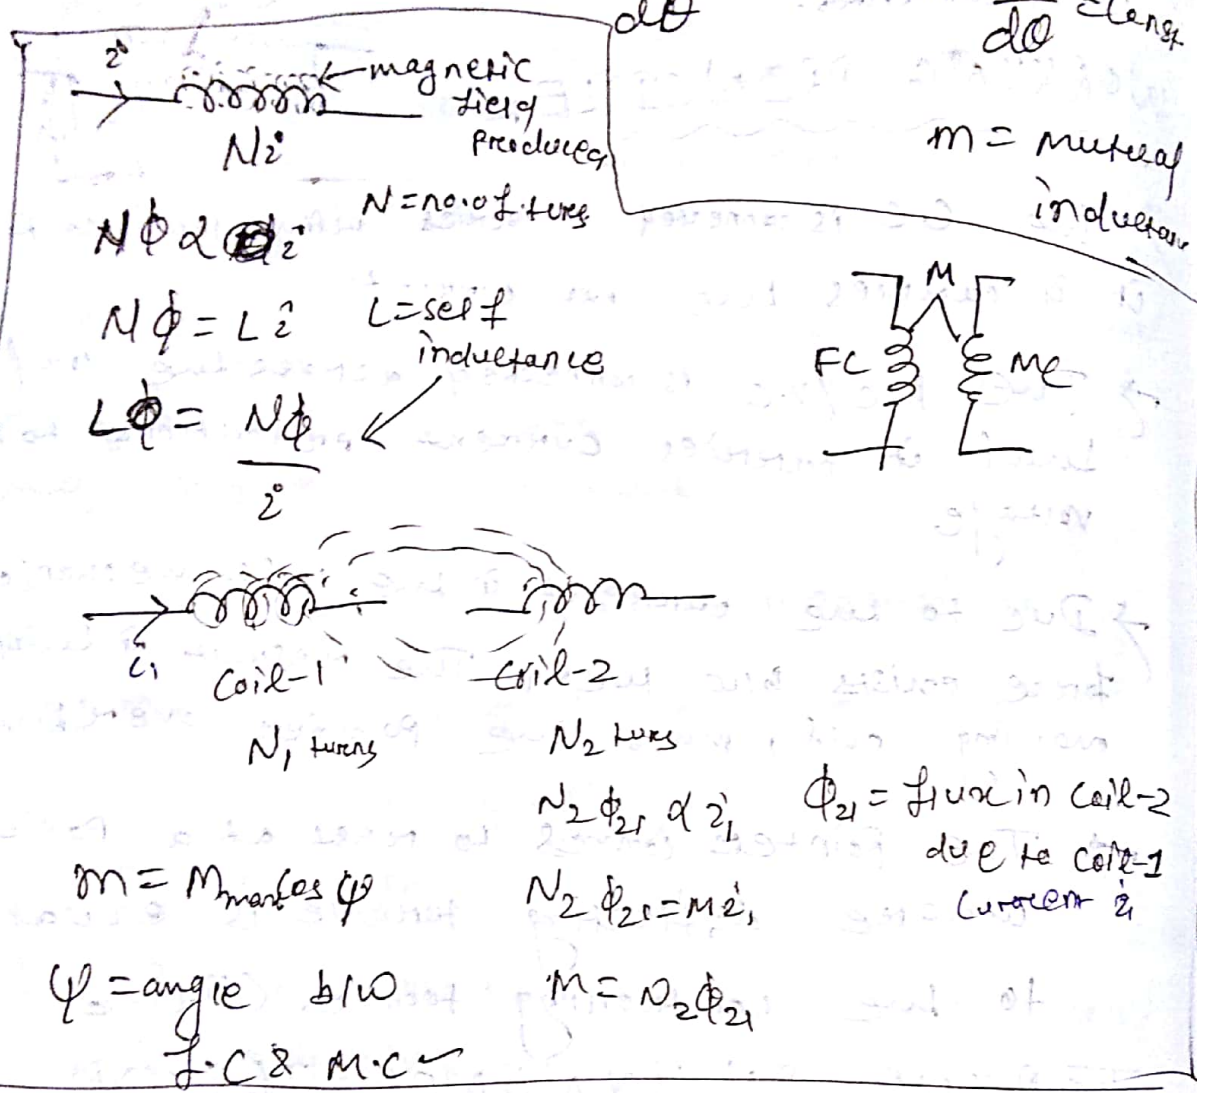 dθ
dθ = Const
i
magnetic
field
produced
Ni
N = no. of turns
m = mutual
inductan
Nϕ ∝ i
Nϕ = Li
L = self
inductance
L = Nϕ
i
M
FC
MC
i₁
Coil-1
Coil-2
N₁ turns
N₂ turns
N₂ϕ₂₁ ∝ i₁
ϕ₂₁ = flux in coil-2
due to coil-1
current i₁
m = Mmax Cos φ
N₂ϕ₂₁ = Mi₁
φ = angle b/w
F.C & M.C
M = N₂ϕ₂₁